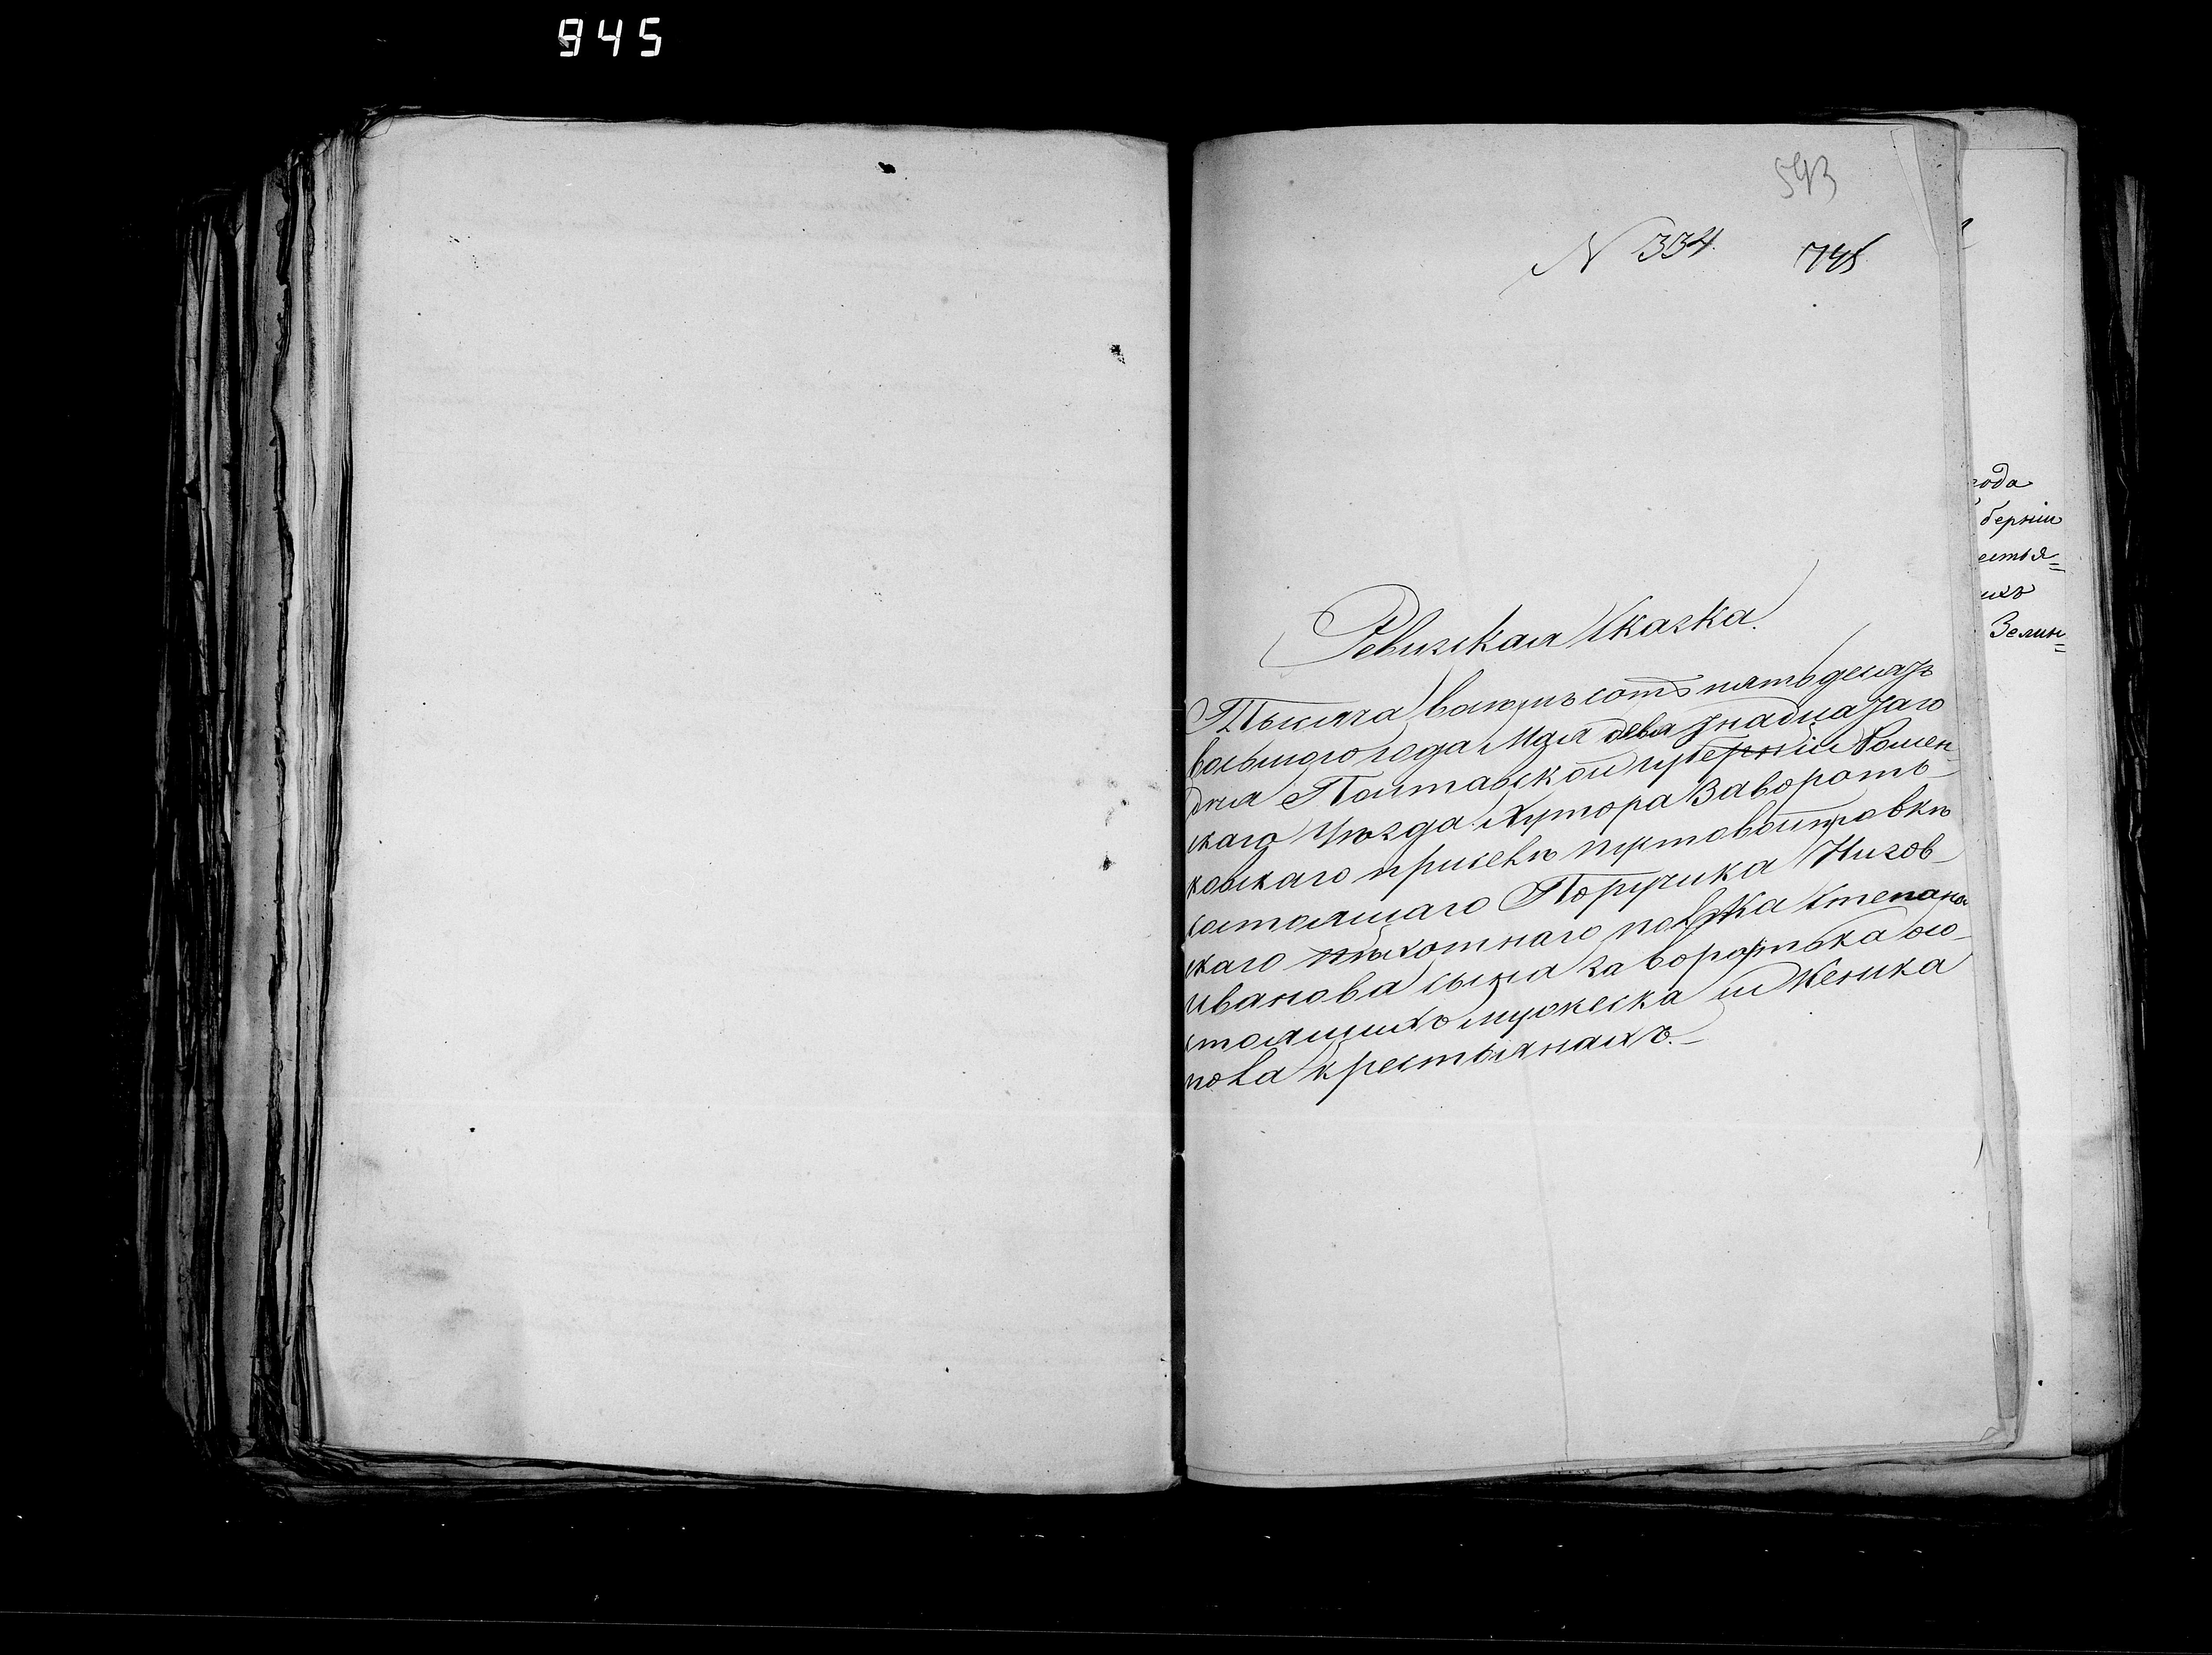 945
543
N 334. 745
Ревизская Сказка.
Тысяча восемь сотъ пятьдесятъ
восьмого года Мая девятнадцатаго
дня Полтавской губерніи Ромен-
скаго Уѣзда Хутора Заворотъ-
ковскаго при селѣ
состоящаго Поручика Низов-
скаго пѣхотнаго полка Степана
Иванова сына Заворотька о со-
стоящихъ мужеска и женска
пола крестьянахъ.
года
берніи
естья=
ихъ
Зелин=